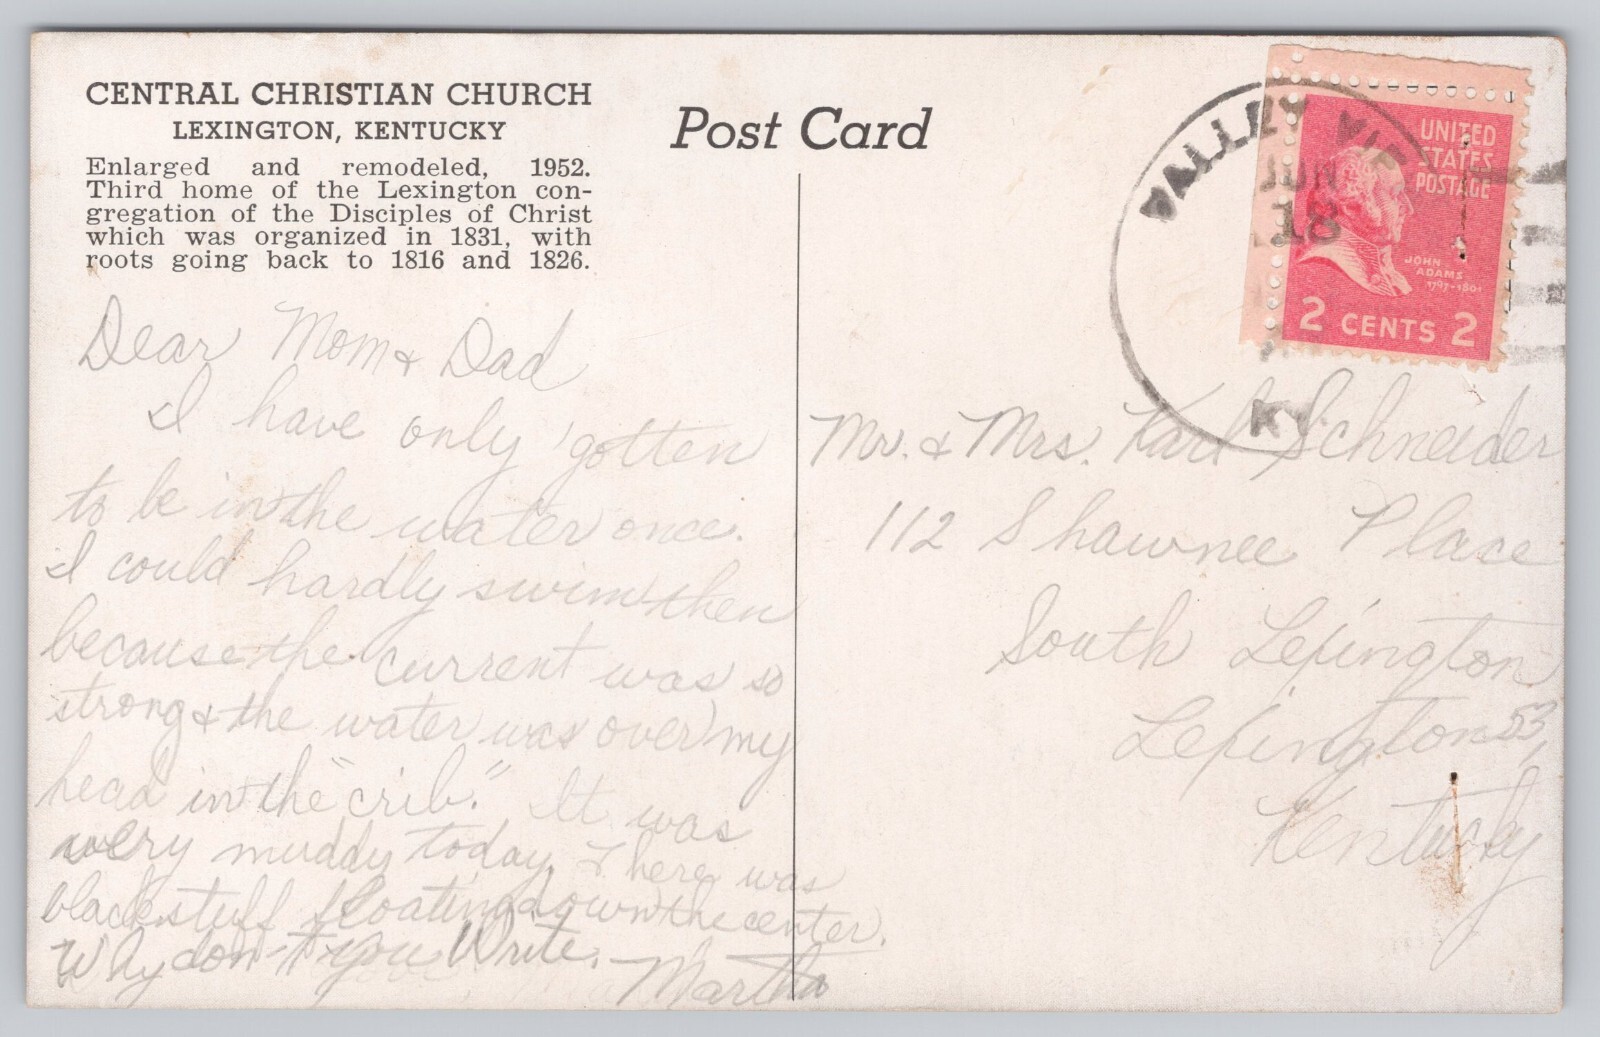 CENTRAL CHRISTIAN CHURCH
LEXINGTON, KENTUCKY
Enlarged and remodeled, 1952.
Third home of the Lexington con-
gregation of the Disciples of Christ
which was organized in 1831, with
roots going back to 1816 and 1826.
Dear Mom & Dad
I have only gotten
to be in the water once.
I could hardly swim then
because the current was so
strong & the water was over my
head in the "crib." It was
very muddy today. There was
black stuff floating down the center.
Why don't you Write.
Martha
Post Card
VALLEY VIE
JUN
18
KY.
UNITED
STATES
POSTAGE
JOHN
ADAMS
1797-1801
2 CENTS 2
Mr. & Mrs. Karl Schneider
112 Shawnee Place
South Lexington
Lexington 53,
Kentucky